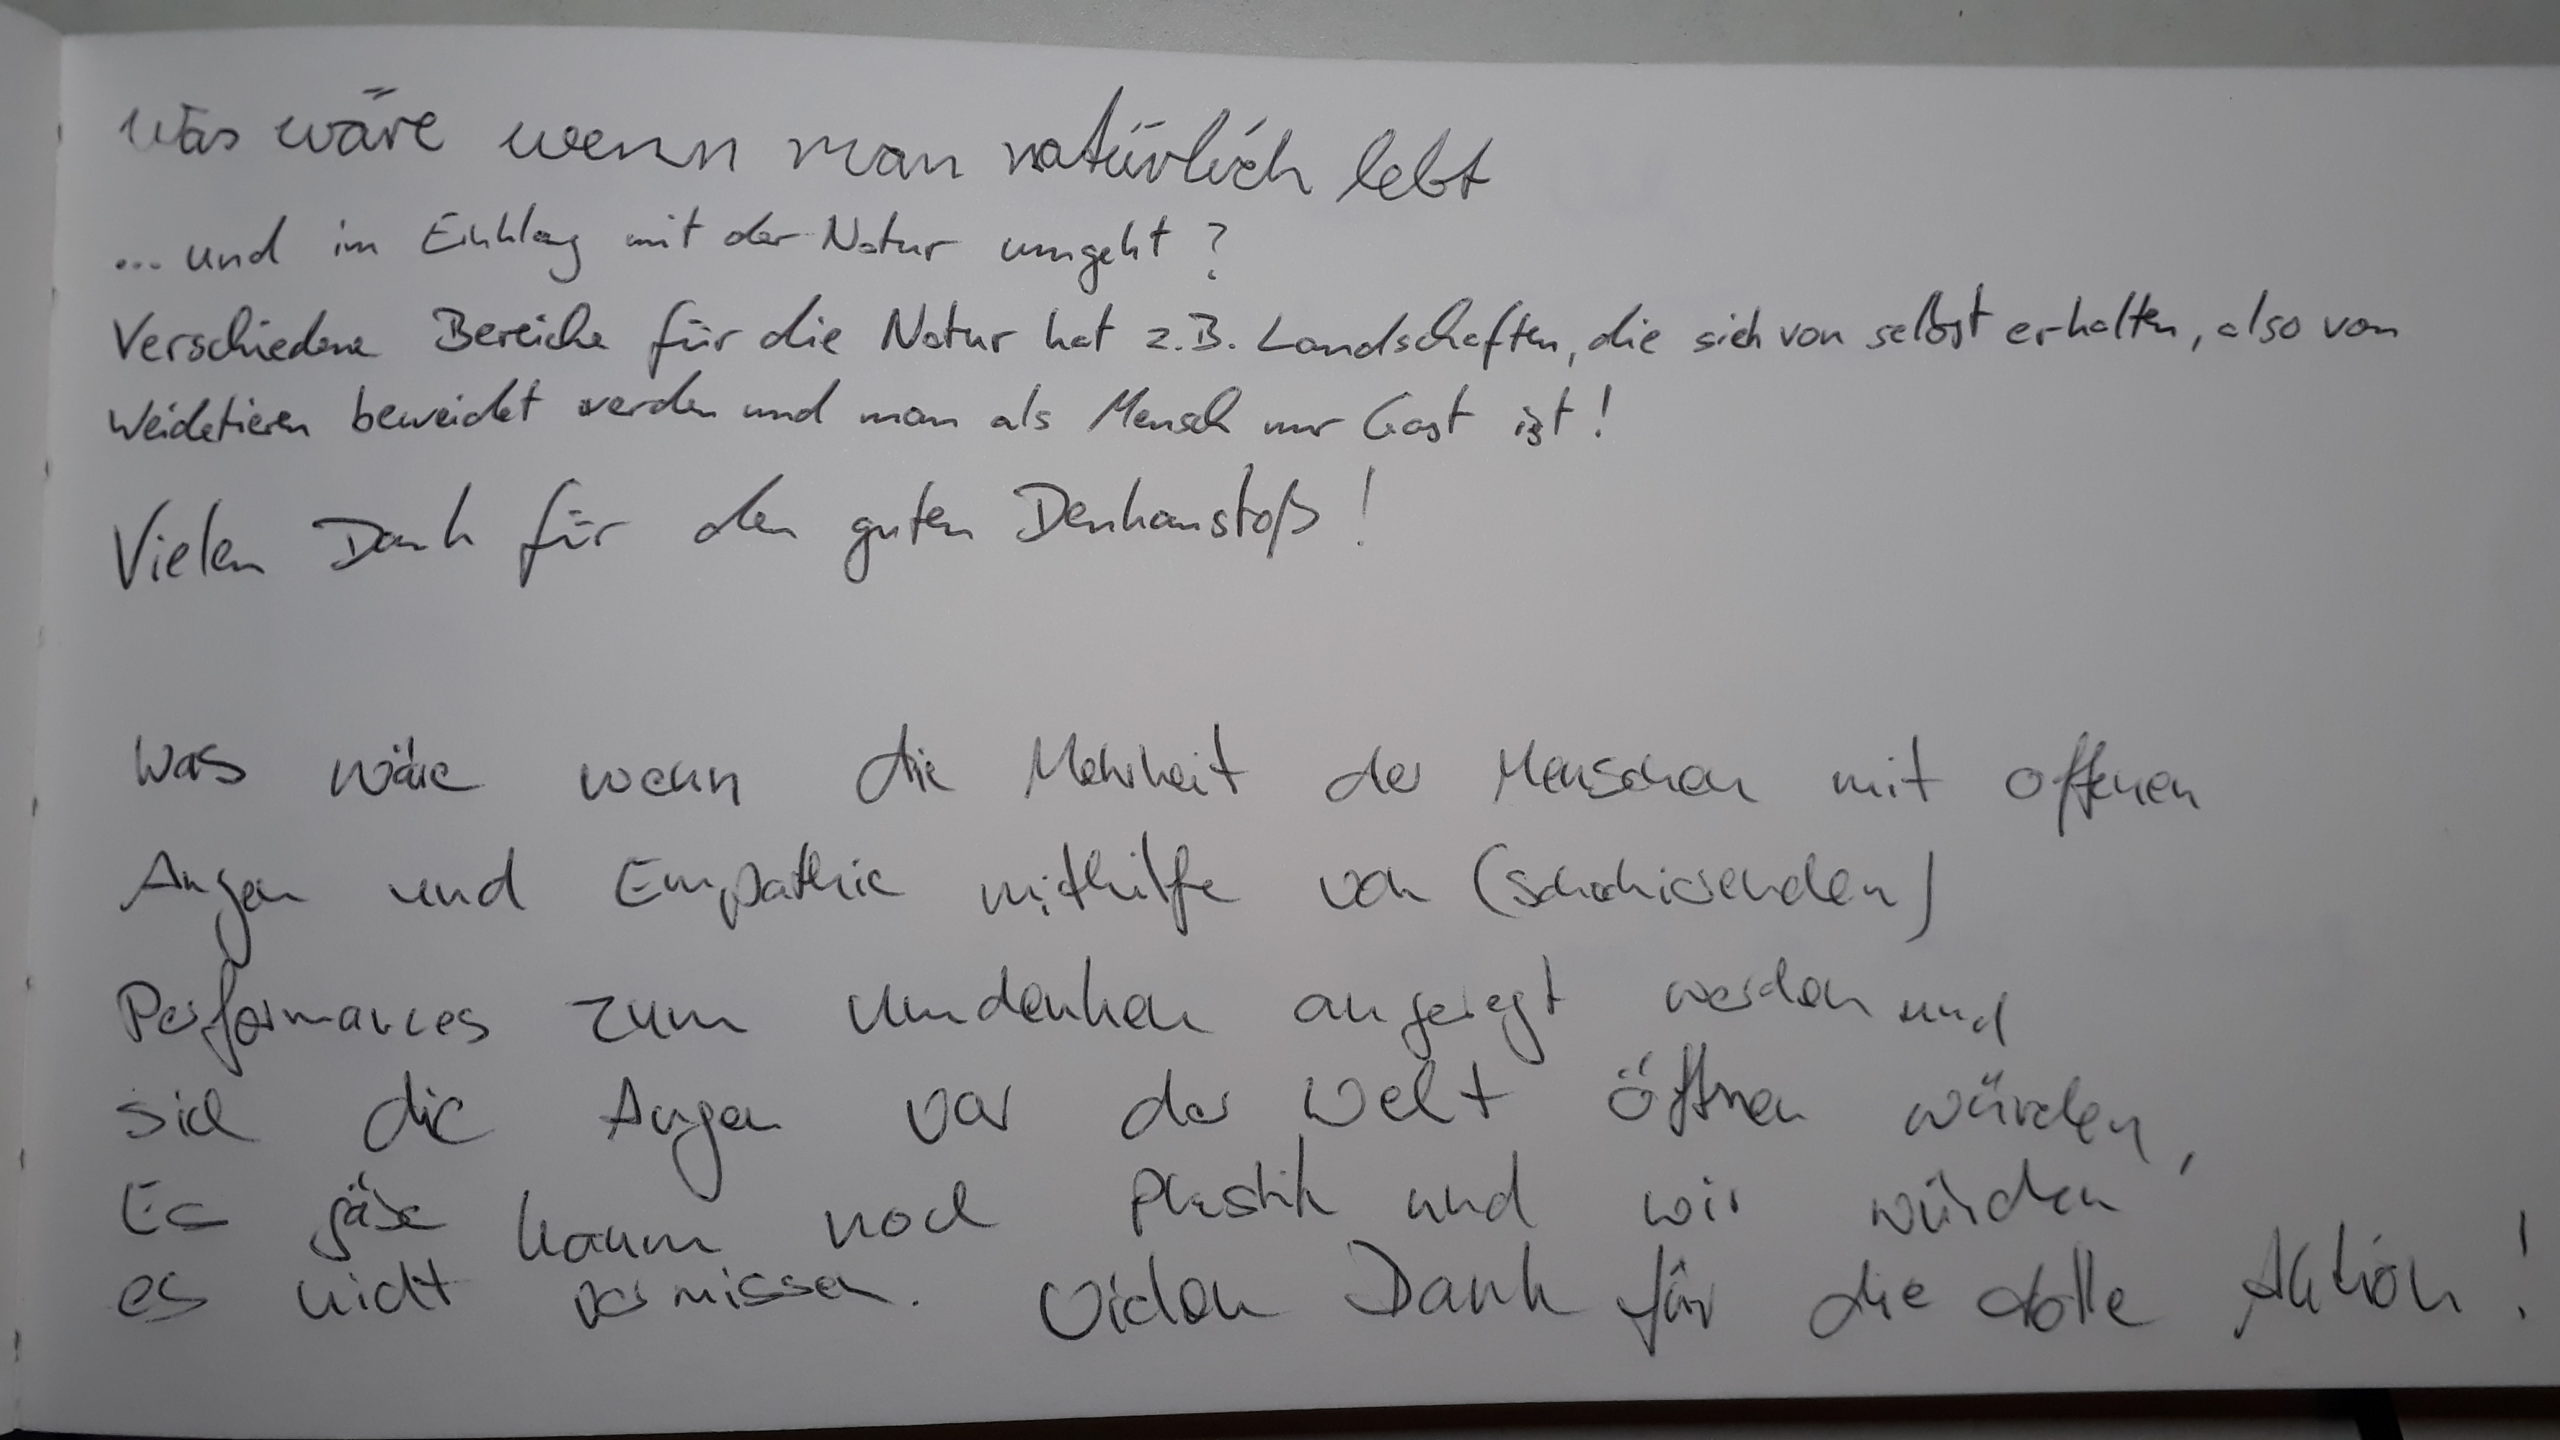 Was wäre wenn man natürlich lebt
... und im Einklang mit der Natur umgeht?
Verschiedene Bereiche für die Natur hat z.B. Landschaften, die sich von selbst erhalten, also von
Weidetieren beweidet werden und man als Mensch nur Gast ist!
Vielen Dank für den guten Denkanstoß!
Was wäre wenn die Mehrheit der Menschen mit offenen
Augen und Empathie mithilfe von (schockierenden)
Performances zum Umdenken angeregt werden und
sich die Augen vor der Welt öffnen würden,
Es gäbe kaum noch Plastik und wir würden
es nicht vermissen. Vielen Dank für die dolle Aktion!